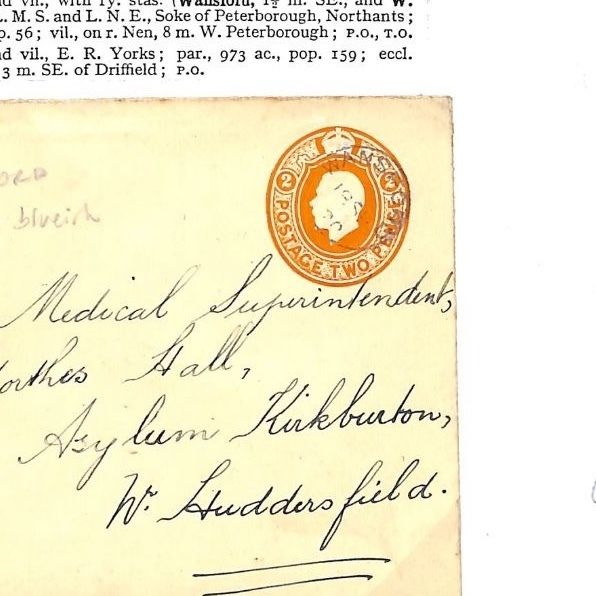 vil., with ry. stas. (Wansford, 1½ m. SE., and W.
L. M. S. and L. N. E., Soke of Peterborough, Northants;
p. 56; vil., on r. Nen, 8 m. W. Peterborough; P.O., T.O.
nd vil., E. R. Yorks; par., 973 ac., pop. 159; eccl.
3 m. SE. of Driffield; P.O.
2
POSTAGE TWO PENCE
WANSF
19 S
ORD
blueish
Medical Superintendent,
orthes Hall,
Asylum Kirkburton,
Nr. Huddersfield.